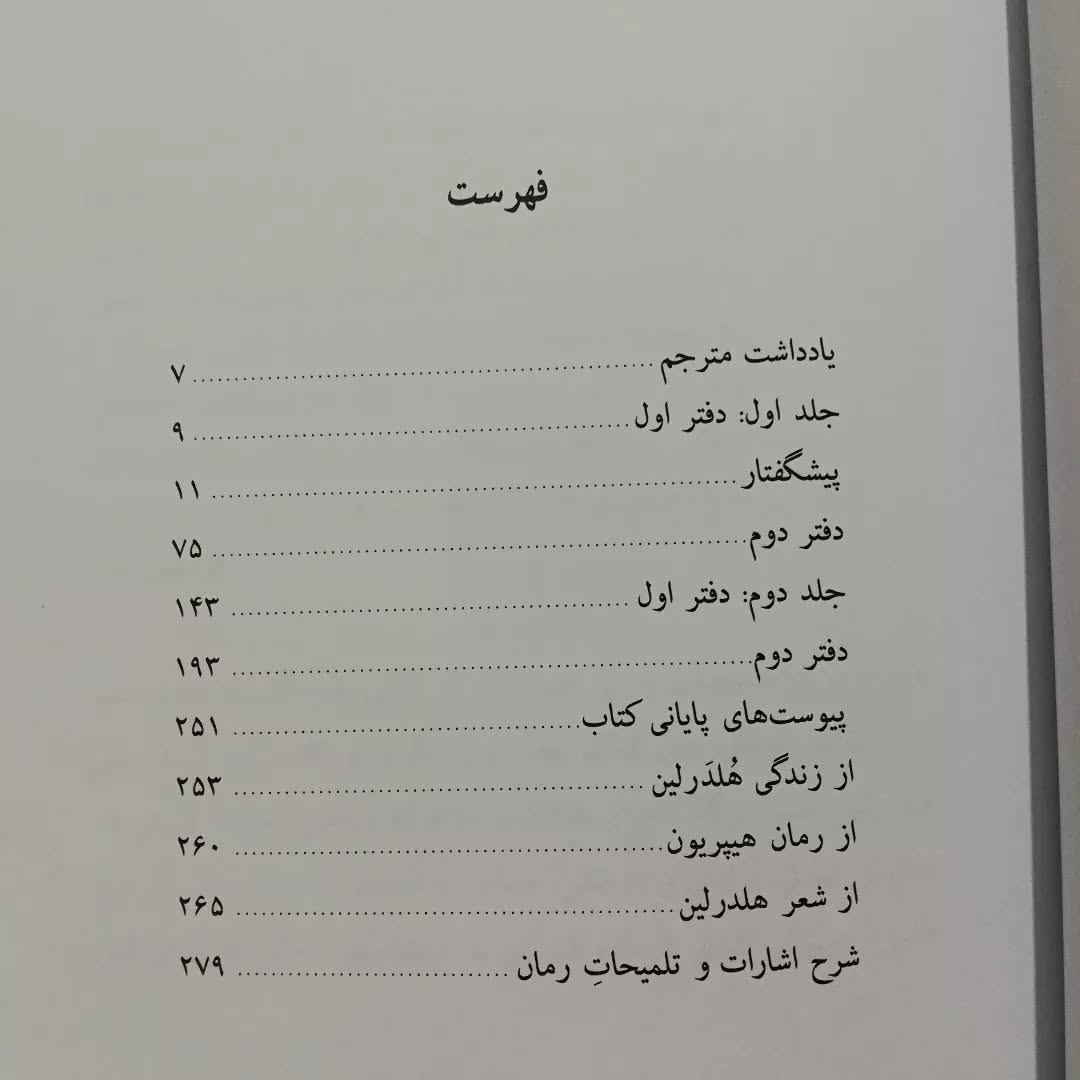 فهرست
یادداشت مترجم ........ ۷
جلد اول: دفتر اول ........ ۹
پیشگفتار ........ ۱۱
دفتر دوم ........ ۷۵
جلد دوم: دفتر اول ........ ۱۴۳
دفتر دوم ........ ۱۹۳
پیوست‌های پایانی کتاب ........ ۲۵۱
از زندگی هُلدَرلین ........ ۲۵۳
از رمان هیپریون ........ ۲۶۰
از شعر هلدرلین ........ ۲۶۵
شرح اشارات و تلمیحاتِ رمان ........ ۲۷۹